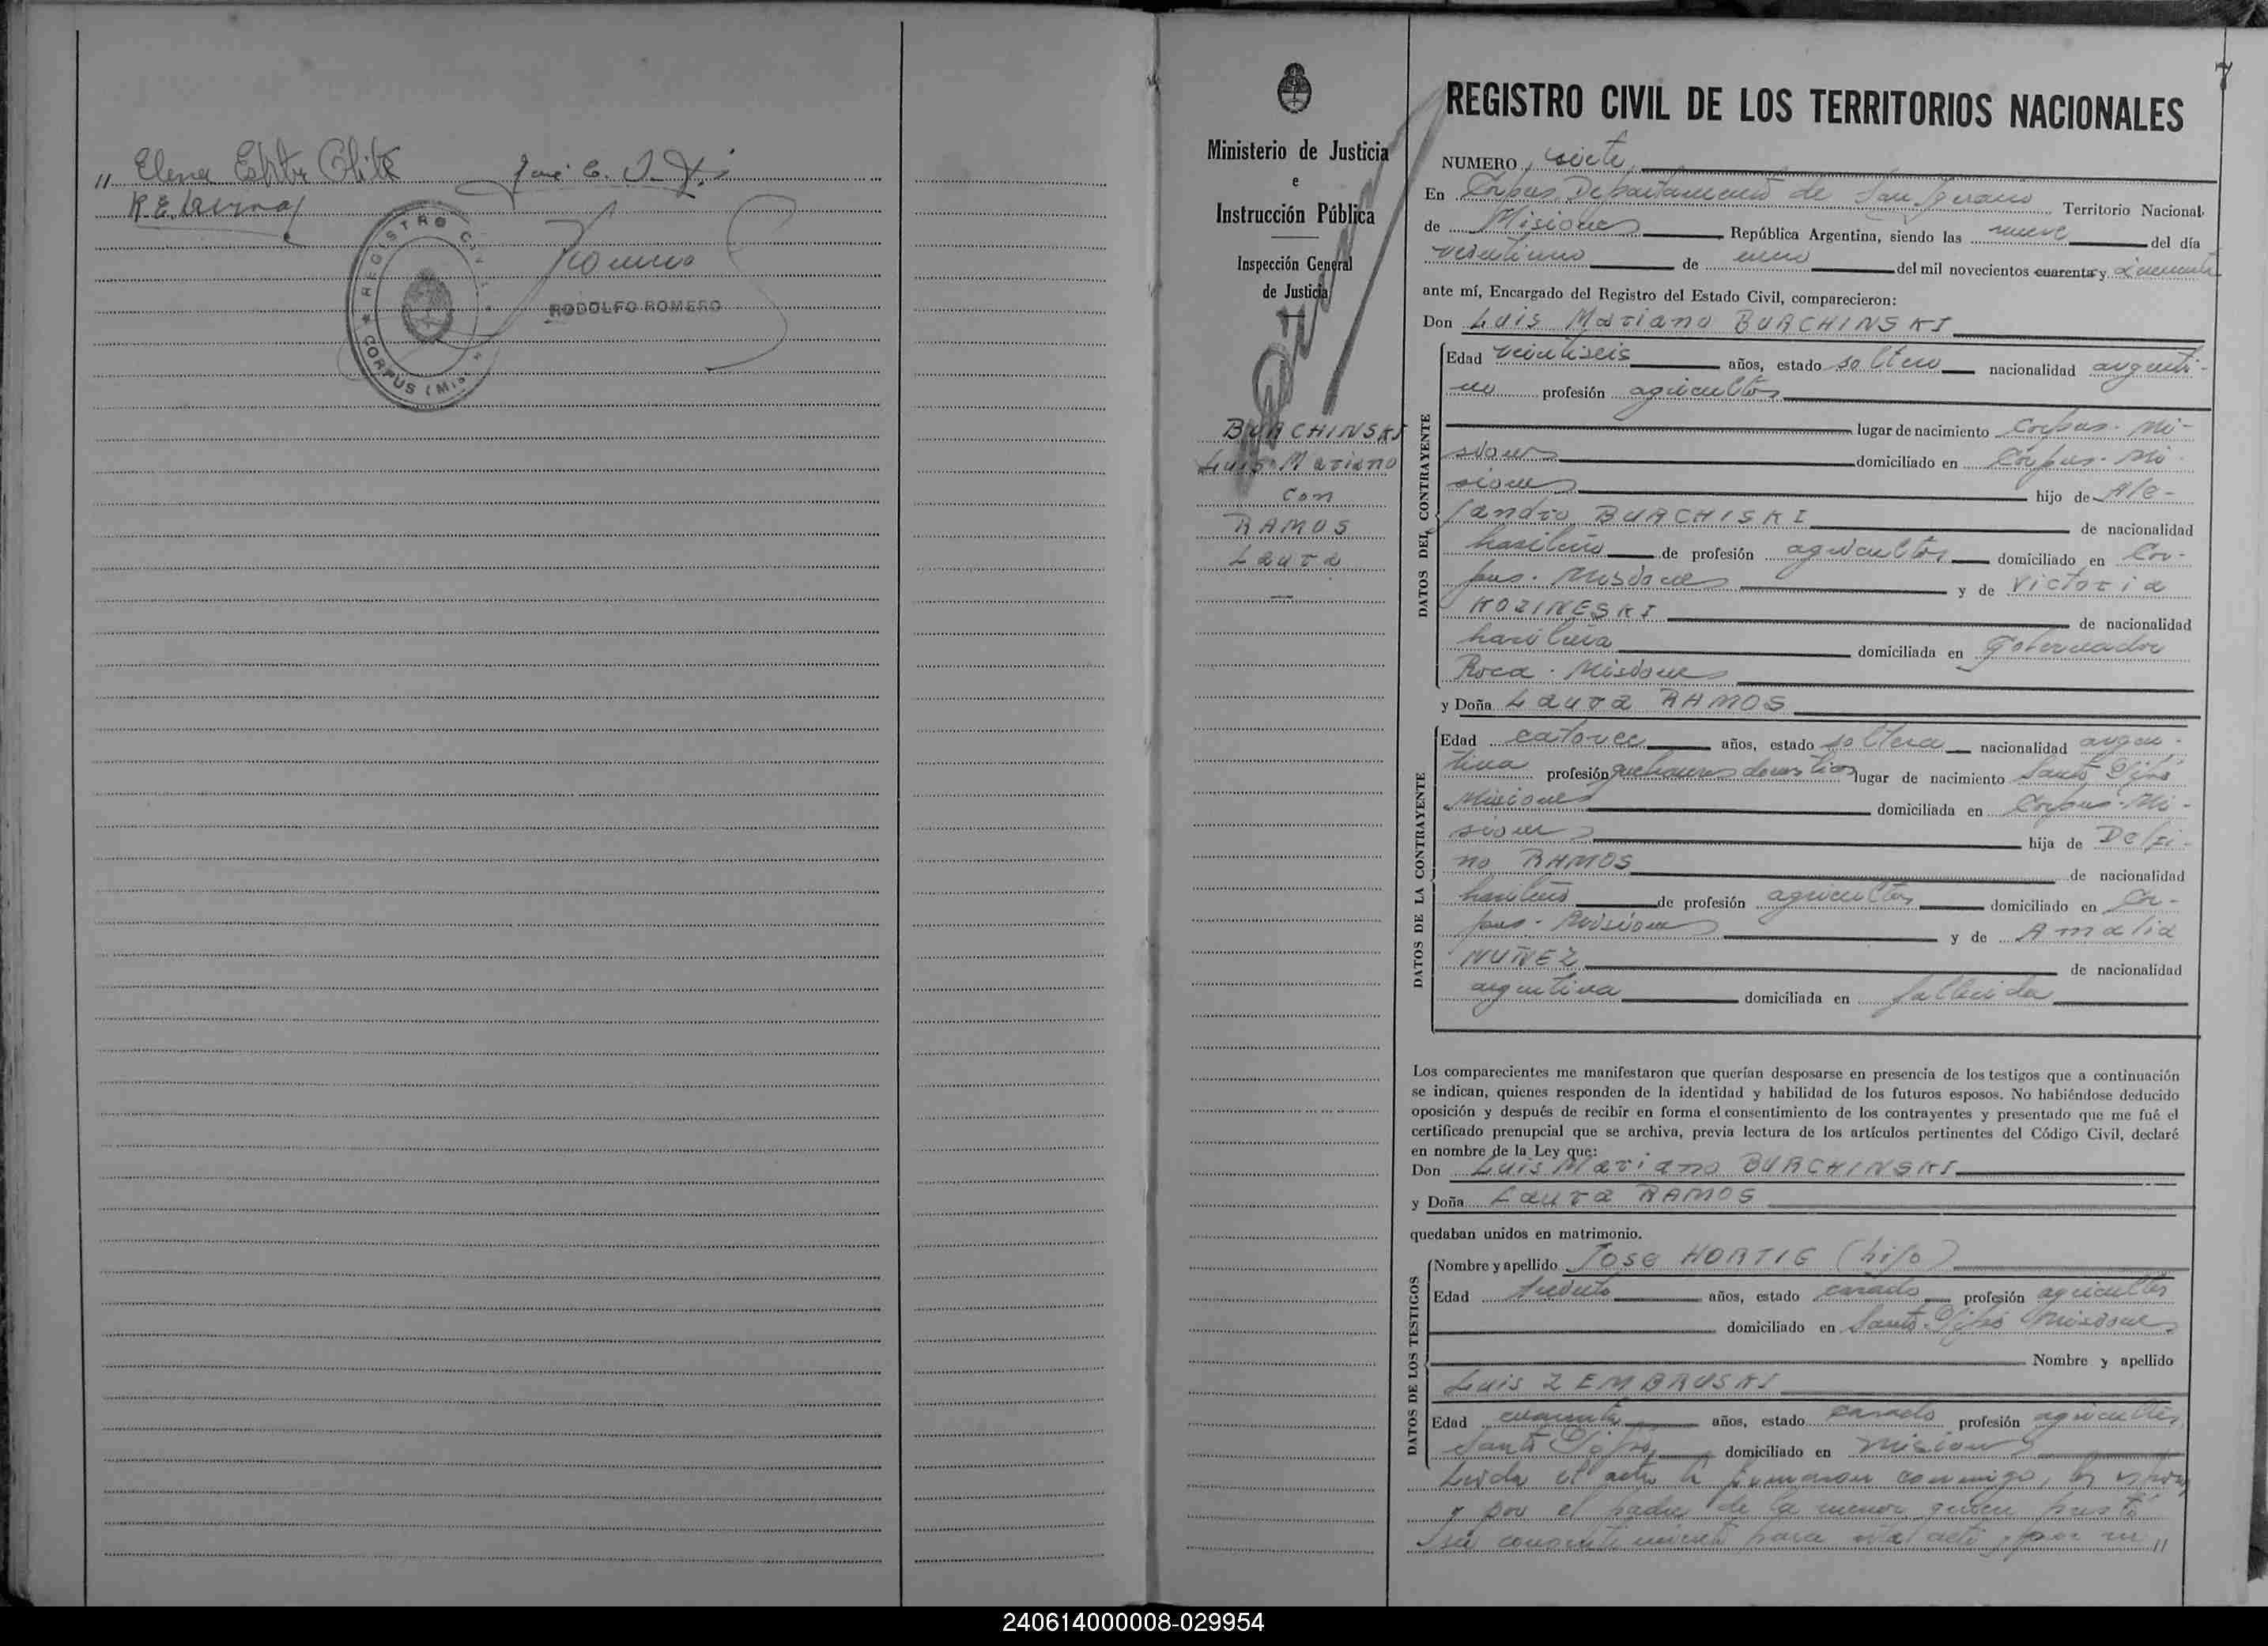 " Elena Esther Olite
REGISTRO C
CORPUS (Mis
Romero
RODOLFO ROMERO
Ministerio de Justicia
e
Instrucción Pública
Inspección General
de Justicia
BURCHINSKI
Luis Mariano
con
RAMOS
Laura
7
REGISTRO CIVIL DE LOS TERRITORIOS NACIONALES
NUMERO siete
En Corpus Departamento de San Ignacio Territorio Nacional
de Misiones República Argentina, siendo las nueve del día
veintiuno de enero del mil novecientos cuarenta y cincuenta
ante mí, Encargado del Registro del Estado Civil, comparecieron:
Don Luis Mariano BURCHINSKI
DATOS DEL CONTRAYENTE
Edad veintiseis años, estado soltero nacionalidad argenti-
no profesión agricultor
lugar de nacimiento Corpus - Mi-
siones domiciliado en Corpus - Mi-
siones hijo de Ale-
jandro BURCHISKI de nacionalidad
brasileño de profesión agricultor domiciliado en Cor-
pus - Misiones y de Victoria
KOZINESKI de nacionalidad
brasileña domiciliada en Gobernador
Roca - Misiones
y Doña Laura RAMOS
DATOS DE LA CONTRAYENTE
Edad catorce años, estado soltera nacionalidad argen-
tina profesión quehaceres domesticos lugar de nacimiento Santo Pipó
Misiones domiciliada en Corpus - Mi-
siones hija de Delfi-
no RAMOS de nacionalidad
brasileño de profesión agricultor domiciliado en Cor-
pus - Misiones y de Amalia
NUÑEZ de nacionalidad
argentina domiciliada en fallecida
Los comparecientes me manifestaron que querían desposarse en presencia de los testigos que a continuación
se indican, quienes responden de la identidad y habilidad de los futuros esposos. No habiéndose deducido
oposición y después de recibir en forma el consentimiento de los contrayentes y presentado que me fué el
certificado prenupcial que se archiva, previa lectura de los artículos pertinentes del Código Civil, declaré
en nombre de la Ley que:
Don Luis Mariano BURCHINSKI
y Doña Laura RAMOS
quedaban unidos en matrimonio.
DATOS DE LOS TESTIGOS
Nombre y apellido Jose HORTIE (hijo)
Edad treinta años, estado casado profesión agricultor
domiciliado en Santo Pipó Misiones
Nombre y apellido
Luis ZEMBRUSKI
Edad cuarenta años, estado casado profesión agricultor
Santo Pipó domiciliado en Misiones
Leida el acta la firmaron conmigo, los
y por el padre de la menor quien prestó
su consentimiento para este acto y por "
240614000008-029954